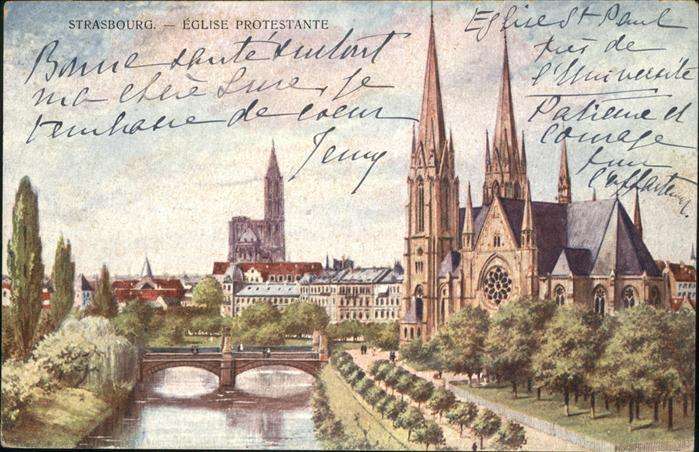 STRASBOURG. — ÉGLISE PROTESTANTE
Bonne santé surtout
ma chère Suze, je
t'embrasse de coeur
Jenny
Eglise St Paul
près de
l'Université
Patience et
courage